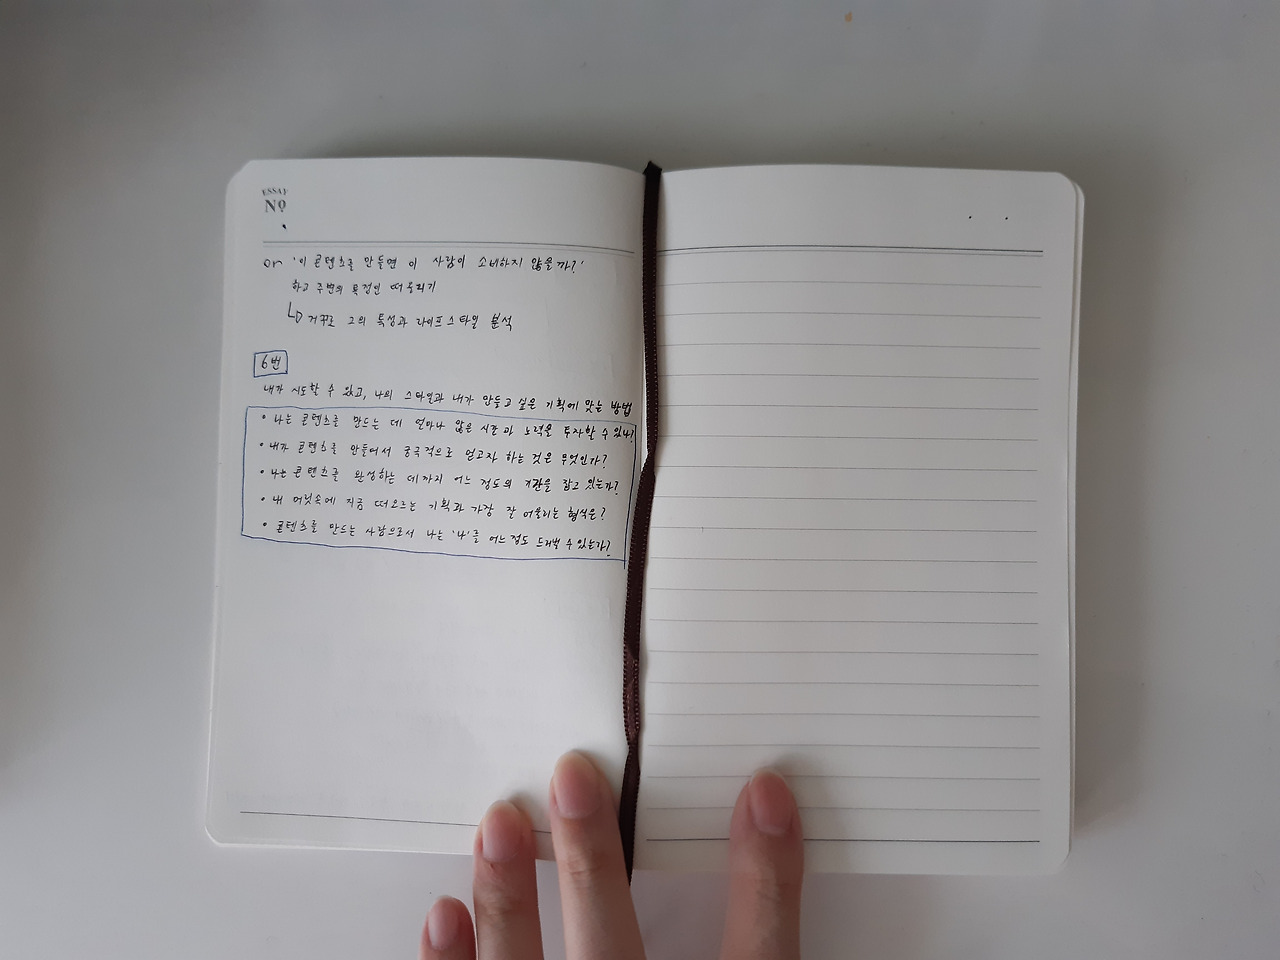 ESSAY
Nº
or '이 콘텐츠를 만들면 이 사람이 소비하지 않을까?'
하고 주변의 특정인 떠올리기
↳ 거꾸로 그의 특성과 라이프스타일 분석
6번
내가 시도할 수 있고, 나의 스타일과 내가 만들고 싶은 기획에 맞는 방법
• 나는 콘텐츠를 만드는 데 얼마나 많은 시간과 노력을 투자할 수 있나?
• 내가 콘텐츠를 만들어서 궁극적으로 얻고자 하는 것은 무엇인가?
• 나는 콘텐츠를 완성하는 데까지 어느 정도의 기간을 잡고 있는가?
• 내 머릿속에 지금 떠오르는 기획과 가장 잘 어울리는 형식은?
• 콘텐츠를 만드는 사람으로서 나는 '나'를 어느정도 드러낼 수 있는가?